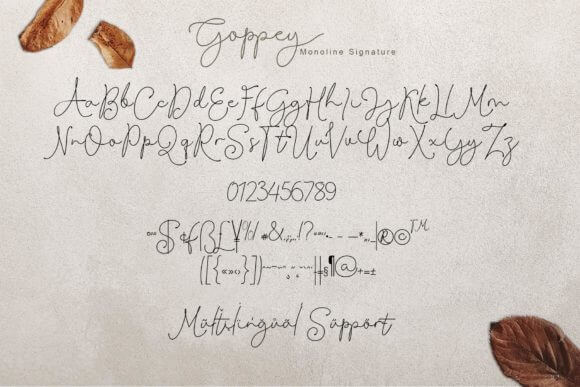 Goppey
Monoline Signature
AaBbCcDdEeFfGgHhIiJjKkLlMm
NnOoPpQqRrSsTtUuVvWwXxYyZz
0123456789
Mültilingüäl Süppört